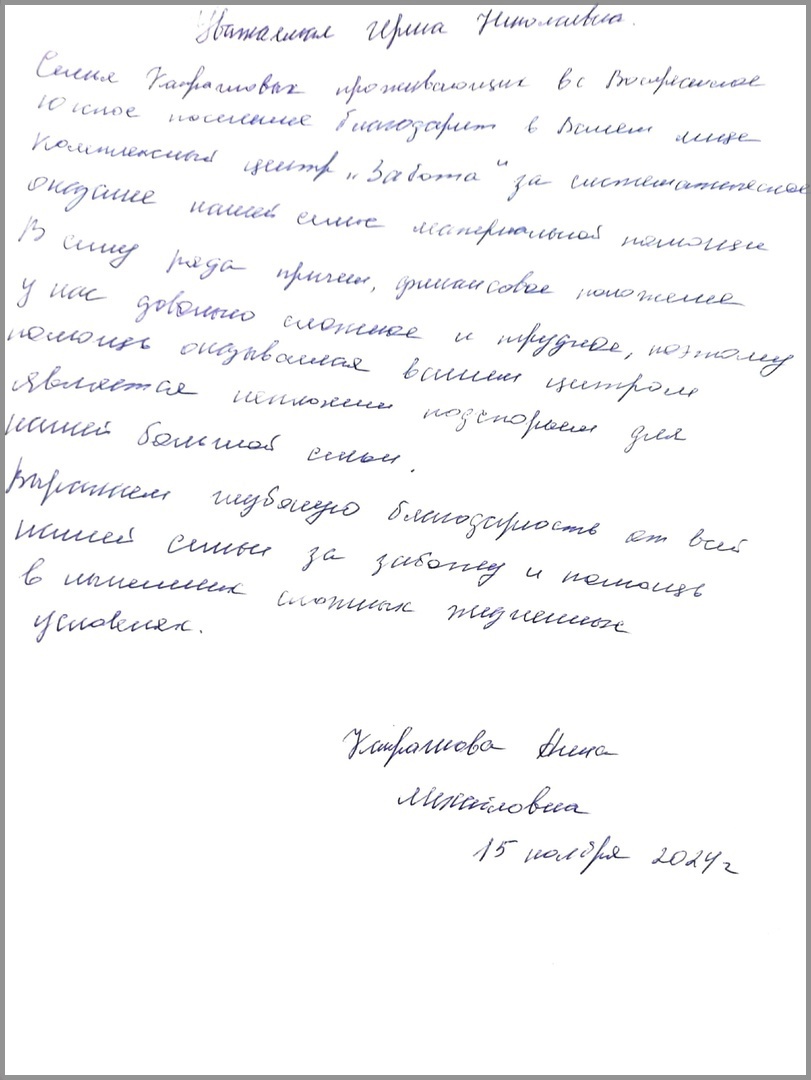 Уважаемая Ирина Николаевна.
Семья проживающих в с Воскресенское
Южное поселение благодарит в Вашем лице
Комплексный центр „Забота" за систематическое
оказание нашей семье материальной помощи
В силу ряда причин, финансовое положение
у нас довольно сложное и трудное, поэтому
помощь оказываемая вашим центром
является неплохим подспорьем для
нашей большой семьи.
Выражаем глубокую благодарность от всей
нашей семьи за заботу и помощь
в нынешних сложных жизненных
условиях.
Анна
Михайловна
15 ноября 2024 г